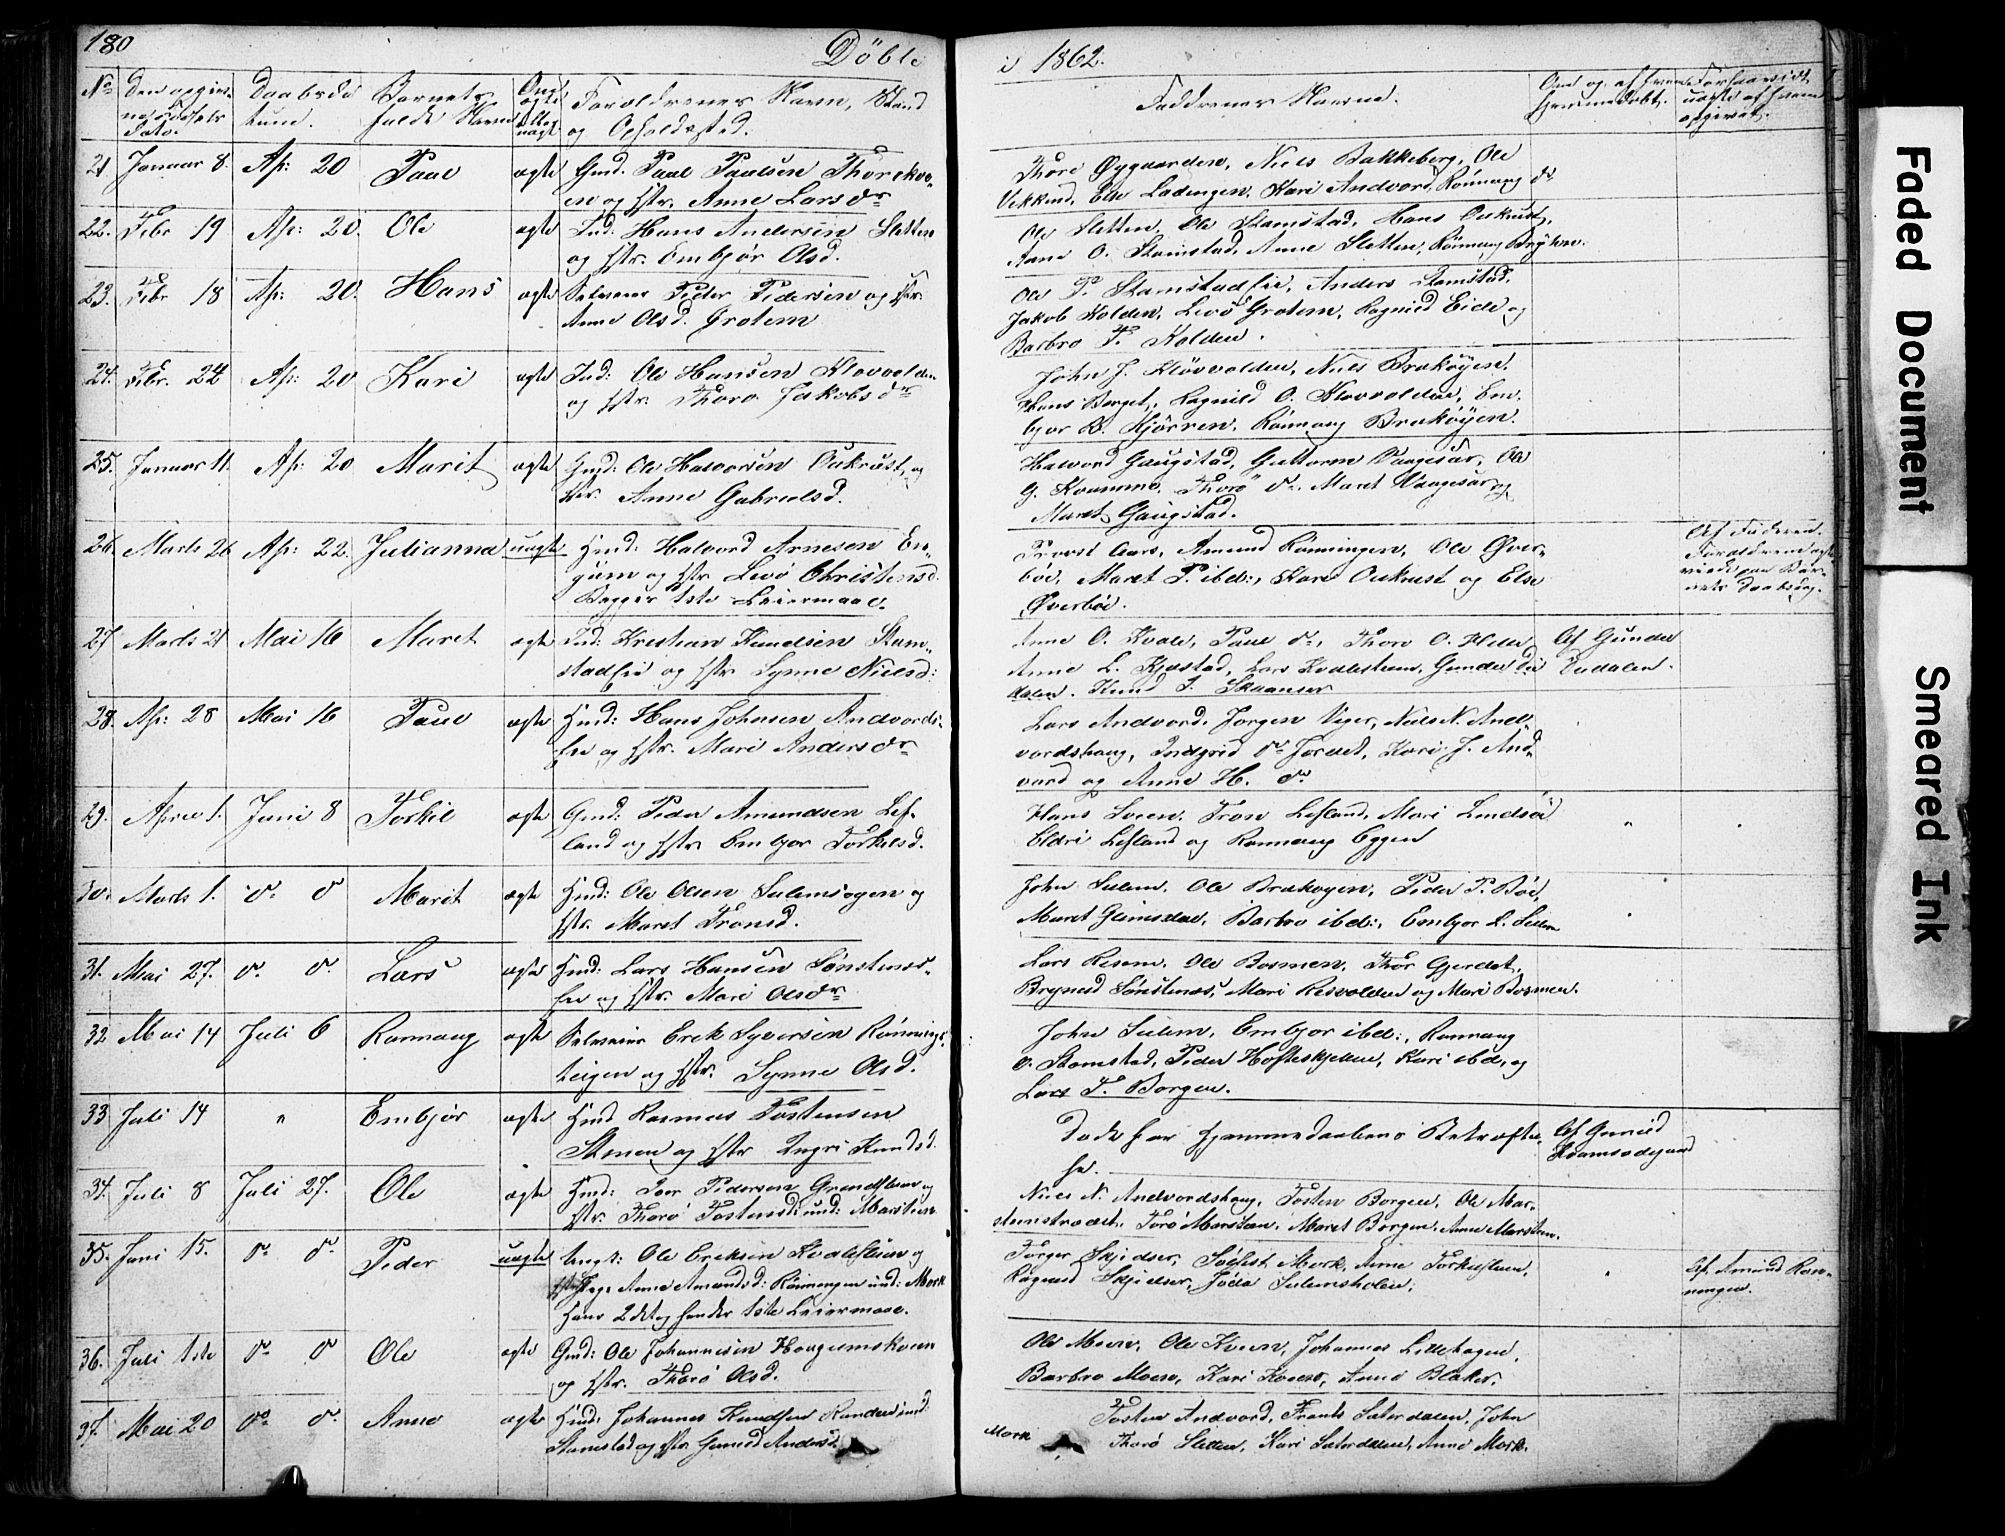 180
Döbte
i 1862.
No
Den opgivne Fødsels Dato.
Daabsdatum.
Barnets fulde Navn
Om ægte eller uægte
Forældrenes Navn, Stand og Opholdssted.
Faddernes Navne.
21. Januar 8. Ap: 20 Paul ægte Gmd. Paul Paulsen Thorekve-
en og Hstr. Anne Larsdr
Thore Øygaarden, Niels Bakkeberg, Ole
Vikkend, Else Ladingen, Kari Andvord, Rönnaug do.
22. Febr 19 Ap: 20. Ole ægte Ind: Hans Andersen Sletten
og Hstr. Embjør Olsd.
Ole Sletten, Ole Stamstad, Hans Oukrust,
Anne O. Stamstad, Anne Sletten, Rönnaug Bryhen.
23. Febr 18 Ap: 20. Hans ægte Selveier Peder Pedersen og Hstr.
Anne Olsd. Grotem
Ole P. Stamstadeie, Anders Stamstad,
Jakob Kolden, Livö Grotem, Ragnild Eide og
Barbro T. Kolden.
24. Febr. 24 Ap: 20 Kari ægte Ind: Ole Hansen Kløvvolden
og Hstr. Thoro Jakobsdr
John J. Klövvolden, Niels Bruköyen,
Hans Berget, Ragnild O. Klovvolden, Em-
bjor B. Kjörren, Rönnaug Brukøyen.
25. Januar 11. Ap: 20 Marit ægte Gmd: Ole Halvorsen Oukrust og
Hstr. Anne Gabrielsd.
Halvord Gaugstad, Guttorm Vaagesar, Ole
G. Kvamme, Thorö do. Maret Vaagesar og
Maret Gaugstad.
26. Marts 26 Ap: 22. Julianna uægte Hmd: Halvord Arnesen En-
gum og Hstr. Livö Christensd.
Begges 1ste Leiermaal.
Provst Aars, Amund Rönningen, Ole Øver-
böe, Maret P. ibd:, Kari Oukrust og Else
Øverböe.
Af Faderen.
Forældrene ægte-
viede paa Bar-
nets Daabsdag.
27. Marts 21 Mai 16 Maret ægte Ind: Kristian Knudsen Stam-
stadeie og Hstr. Synne Nielsd:
Anne O. Kvale, Paul do, Thore O. Kleiv
Anne L. Kjæstad, Lars Kvalestuen, Gunder Du-
dalen. Knud I. Skaanser
Af Gunder
Dudalen.
28. Ap: 28 Mai 16 Paul ægte Hmd: Hans Johnsen Andvords-
eie og Hstr. Mari Andersdr
Lars Andvord, Jørgen Viger, Niels N. And-
vordshaug, Indgrid do Jordet, Kari J. And-
vord og Anne H. do
29. April 1. Juni 8 Torkil ægte Gmd: Peder Amundsen Lef-
land og Hstr Embjor Torkilsd.
Hans Sveen, Tron Lefland, Mari Lindsöe
Eldri Lefland og Rannaug Eggen
30. Marts 1. do do Marit ægte Hmd: Ole Olsen Sulemsogen og
Hstr. Maret Tronsd.
John Sulem, Ole Brukøyen, Peder P. Böe,
Maret Grimsdal, Barbro ibd:, Embjor L. Sulem
31. Mai 27. do. do. Lars ægte Hmd: Lars Hansen Sønstenæs-
eie og Hstr. Mari Olsdr
Lars Risem, Ole Bosmen, Thor Gjerdet,
Brynild Sönstenæs, Mari Risvolden og Mari Bosmen.
32 Mai 14 Juli 6 Rannaug ægte Selveier Erik Syversen Rønnings-
teigen og Hstr. Synne Olsd.
John Sulem, Embjor ibd:, Rannaug
O. Stamstad, Peder Hofteskjelen, Kari ibd, og
Lars T. Borgen.
33 Juli 14 " Embjør ægte Hmd Rasmus Tostensen
Stenen og Hstr Ingri Knudsd.
Döde før Hjemmedaabens Bekræftel-
se.
Af Gunild
Kvamsødegaard
34. Juli 8 Juli 27. Ole ægte Hmd: Iver Pedersen Grundstuen og
Hstr. Thorö Tostensd: und: Marstein
Niels N. Andvordshaug, Tosten Borgen, Ole Mar-
steinstrædet, Torö Marstein, Maret Borgen, Anne Marstein.
35. Juni 15. do do. Peder uægte Ungk: Ole Eriksen Kvalestuen og
Pige Anne Amundsd: Rönningen und: Mork
Hans 2det og hendes 1ste Leiermaal.
Torger Skjelser, Sölfest Mork, Anne Torkilstuen,
Ragnild Skjelser, Jöda Sulemsholen.
Af Amund Rön-
ningen.
36. Juli 1ste do do Ole ægte Gmd: Ole Johannesen Haugumskveen
og Hstr. Thorö Olsd.
Ole Moen, Ole Kveen, Johannes Lillehagen,
Barbro Moen, Kari Kveen, Anne Blaker.
37. Mai 20 do do. Anne ægte Hmd: Johannes Knudsen Randen und:
Stamstad og Hstr Gunild Andersd.
Tosten Andvord, Frants Sæterdalen, John
Mork Thorö Sletten, Kari Sæterdalen, Anne Mork.
Faded Document
Smeared Ink